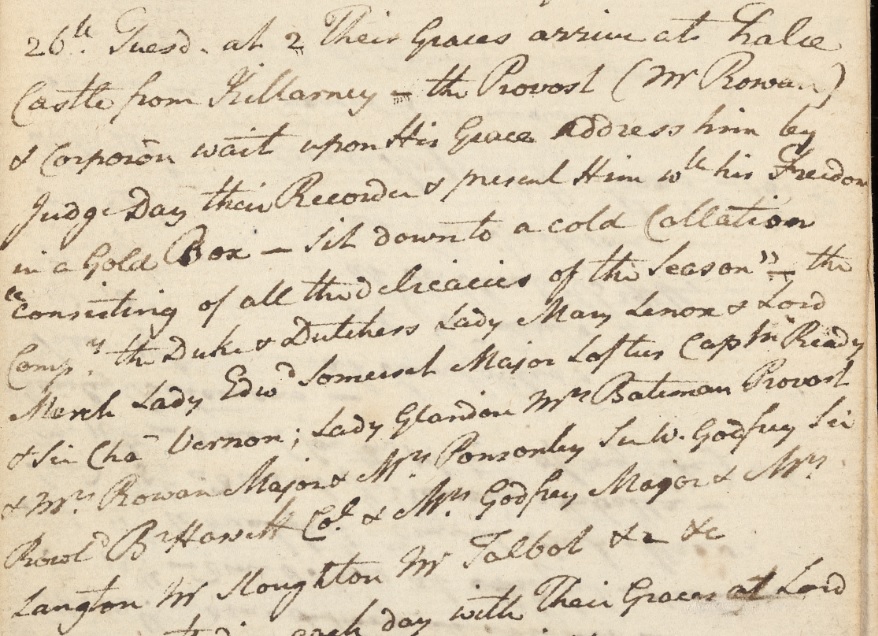 26th. Tuesd. at 2 Their Graces arrive at Tralee
Castle from Killarney = the Provost (Mr Rowan)
& Corporon wait upon His Grace Address him by
Judge Day their Recorder & present Him wth his Freedom
in a Gold Box - sit down to a cold Collation
"consisting of all the delicacies of the Season" = the
Compy. the Duke & Dutchess Lady Mary Lenox & Lord
March Lady Edwd Somerset Major Loftus Captn Ready
& Sir Chas Vernon; Lady Glandore Mrs Bateman Provost
& Mrs. Rowan Major & Mrs Ponsonby Sir W. Godfrey Sir
Rowld Bt Hassett Col. & Mrs. Godfrey Major & Mrs
Langton Mr Stoughton Mr Talbot &c &c
each day with Their Graces at Lord